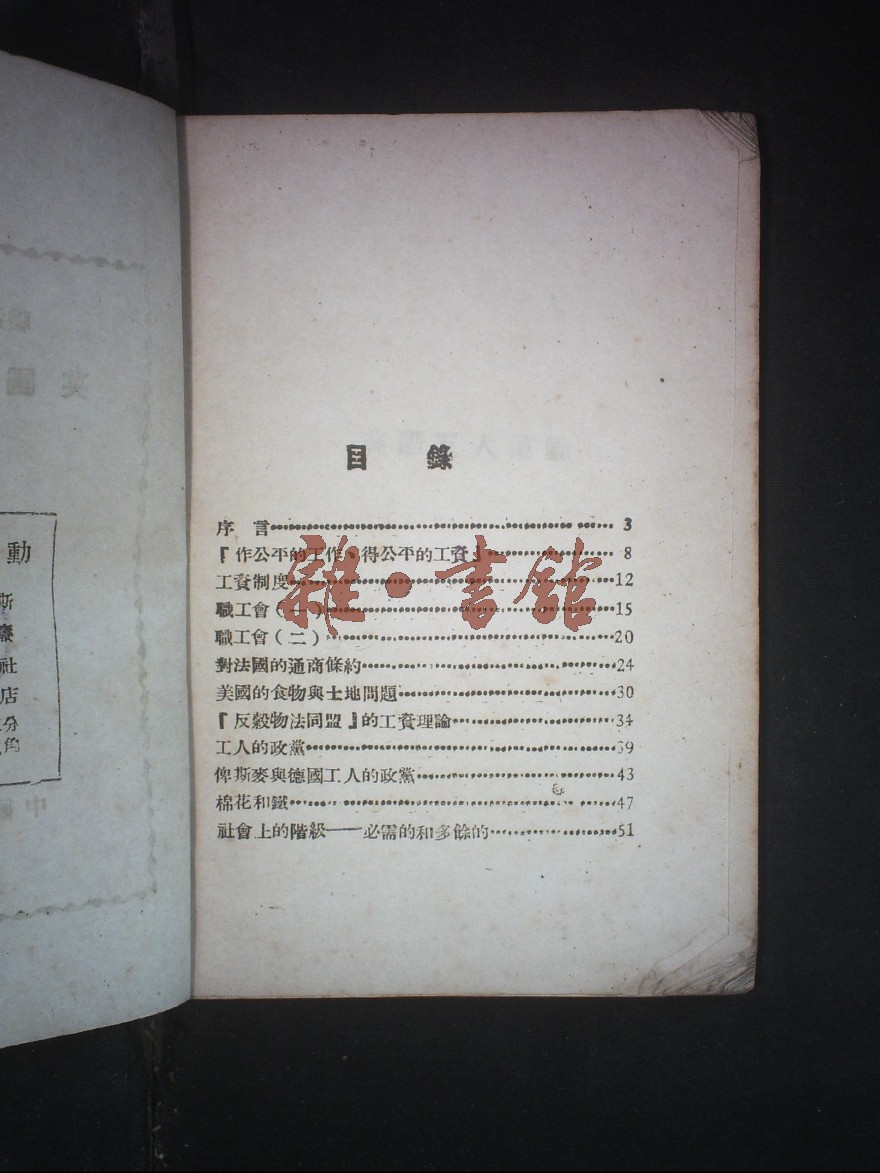 目錄
序言 3
『作公平的工作、得公平的工資』 8
工資制度 12
職工會(一) 15
職工會(二) 20
對法國的通商條約 24
美國的食物與土地問題 30
『反穀物法同盟』的工資理論 34
工人的政黨 39
俾斯麥與德國工人的政黨 43
棉花和鐵 47
社會上的階級——必需的和多餘的 51
雜·書館
動
斯
社
店
分
角